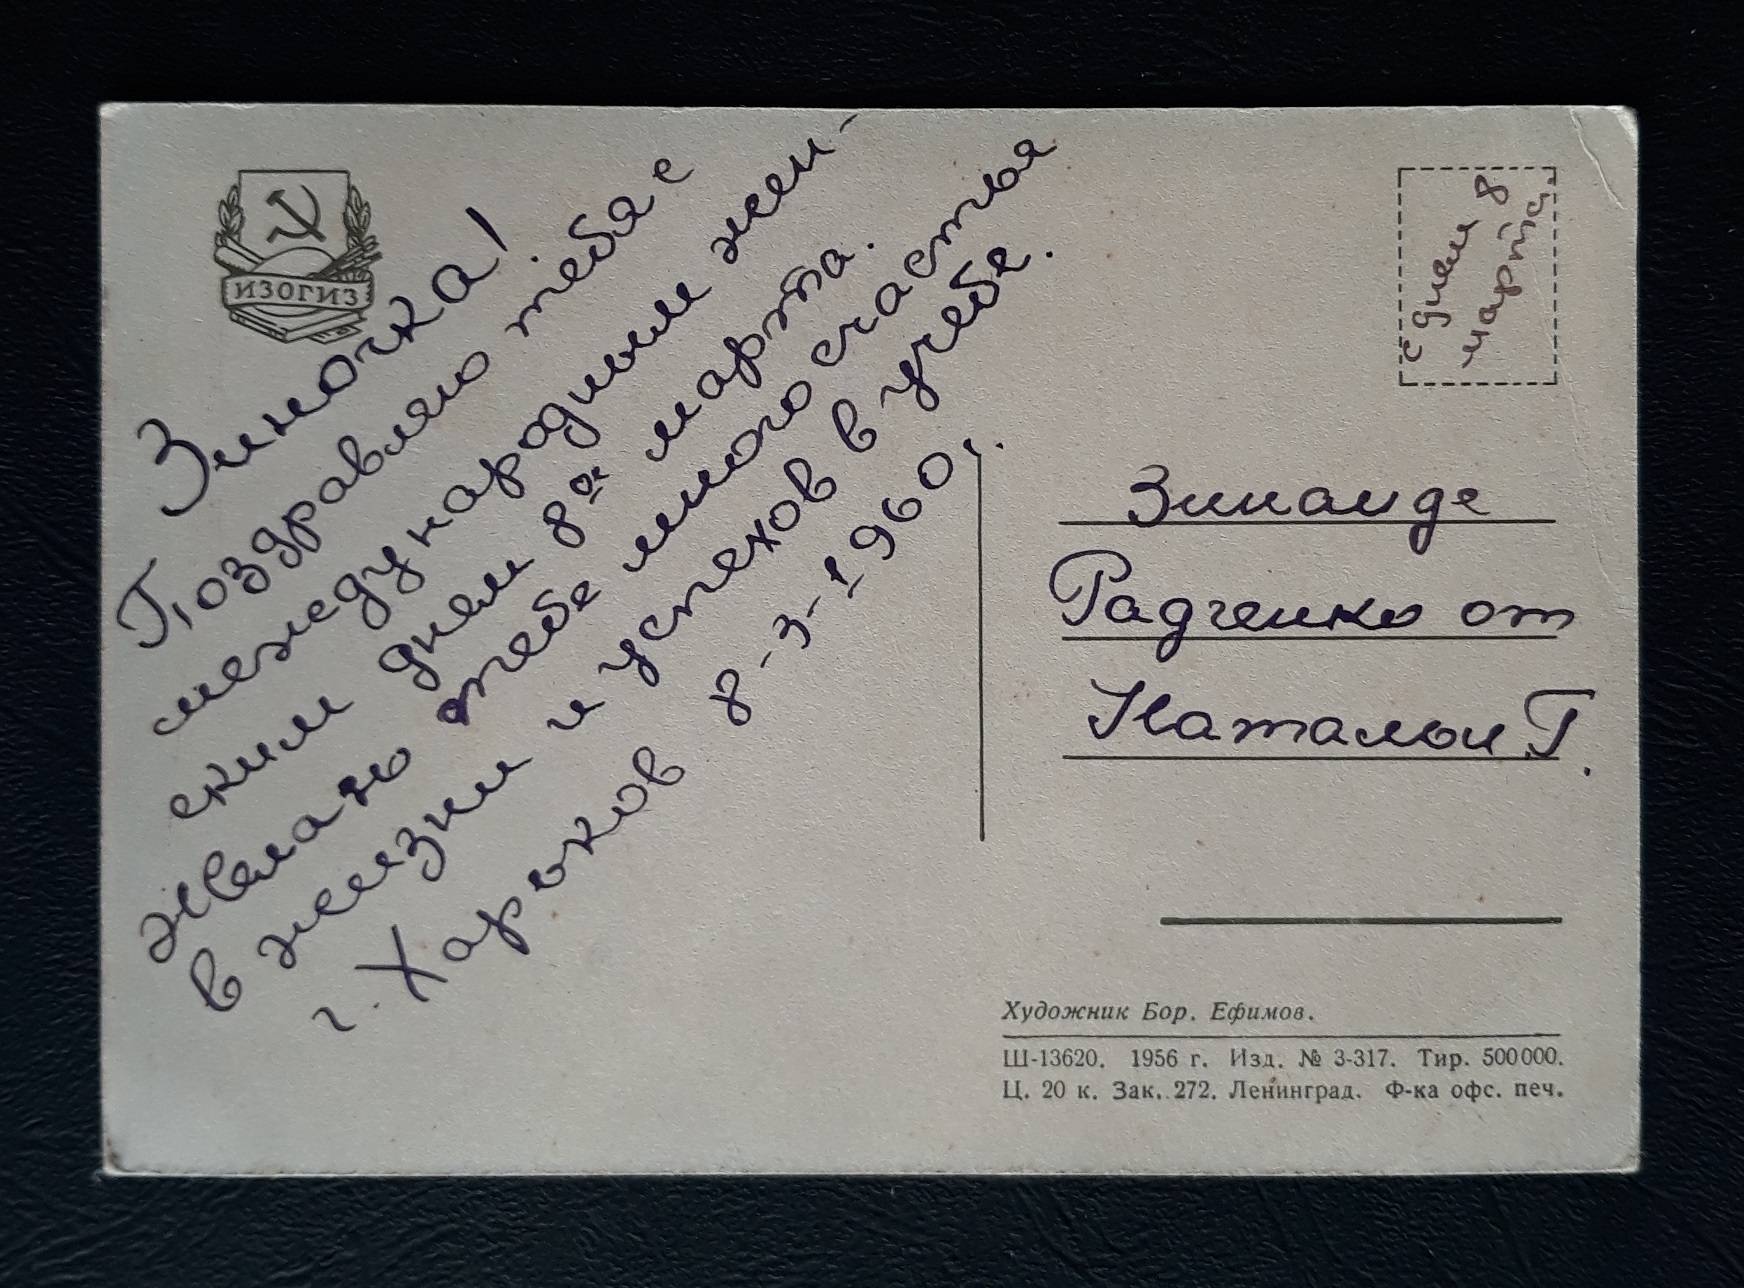 ИЗОГИЗ
Зиночка!
Поздравляю тебя с
международным жен-
ским днем 8ое марта.
Желаю тебе много счастья
в жизни и успехов в учебе.
г. Харьков 8-3-1960г.
с днем 8
марта.
Зинаиде
Радченко от
Натальи Г.
Художник Бор. Ефимов.
Ш-13620. 1956 г. Изд. № 3-317. Тир. 500000.
Ц. 20 к. Зак. 272. Ленинград. Ф-ка офс. печ.